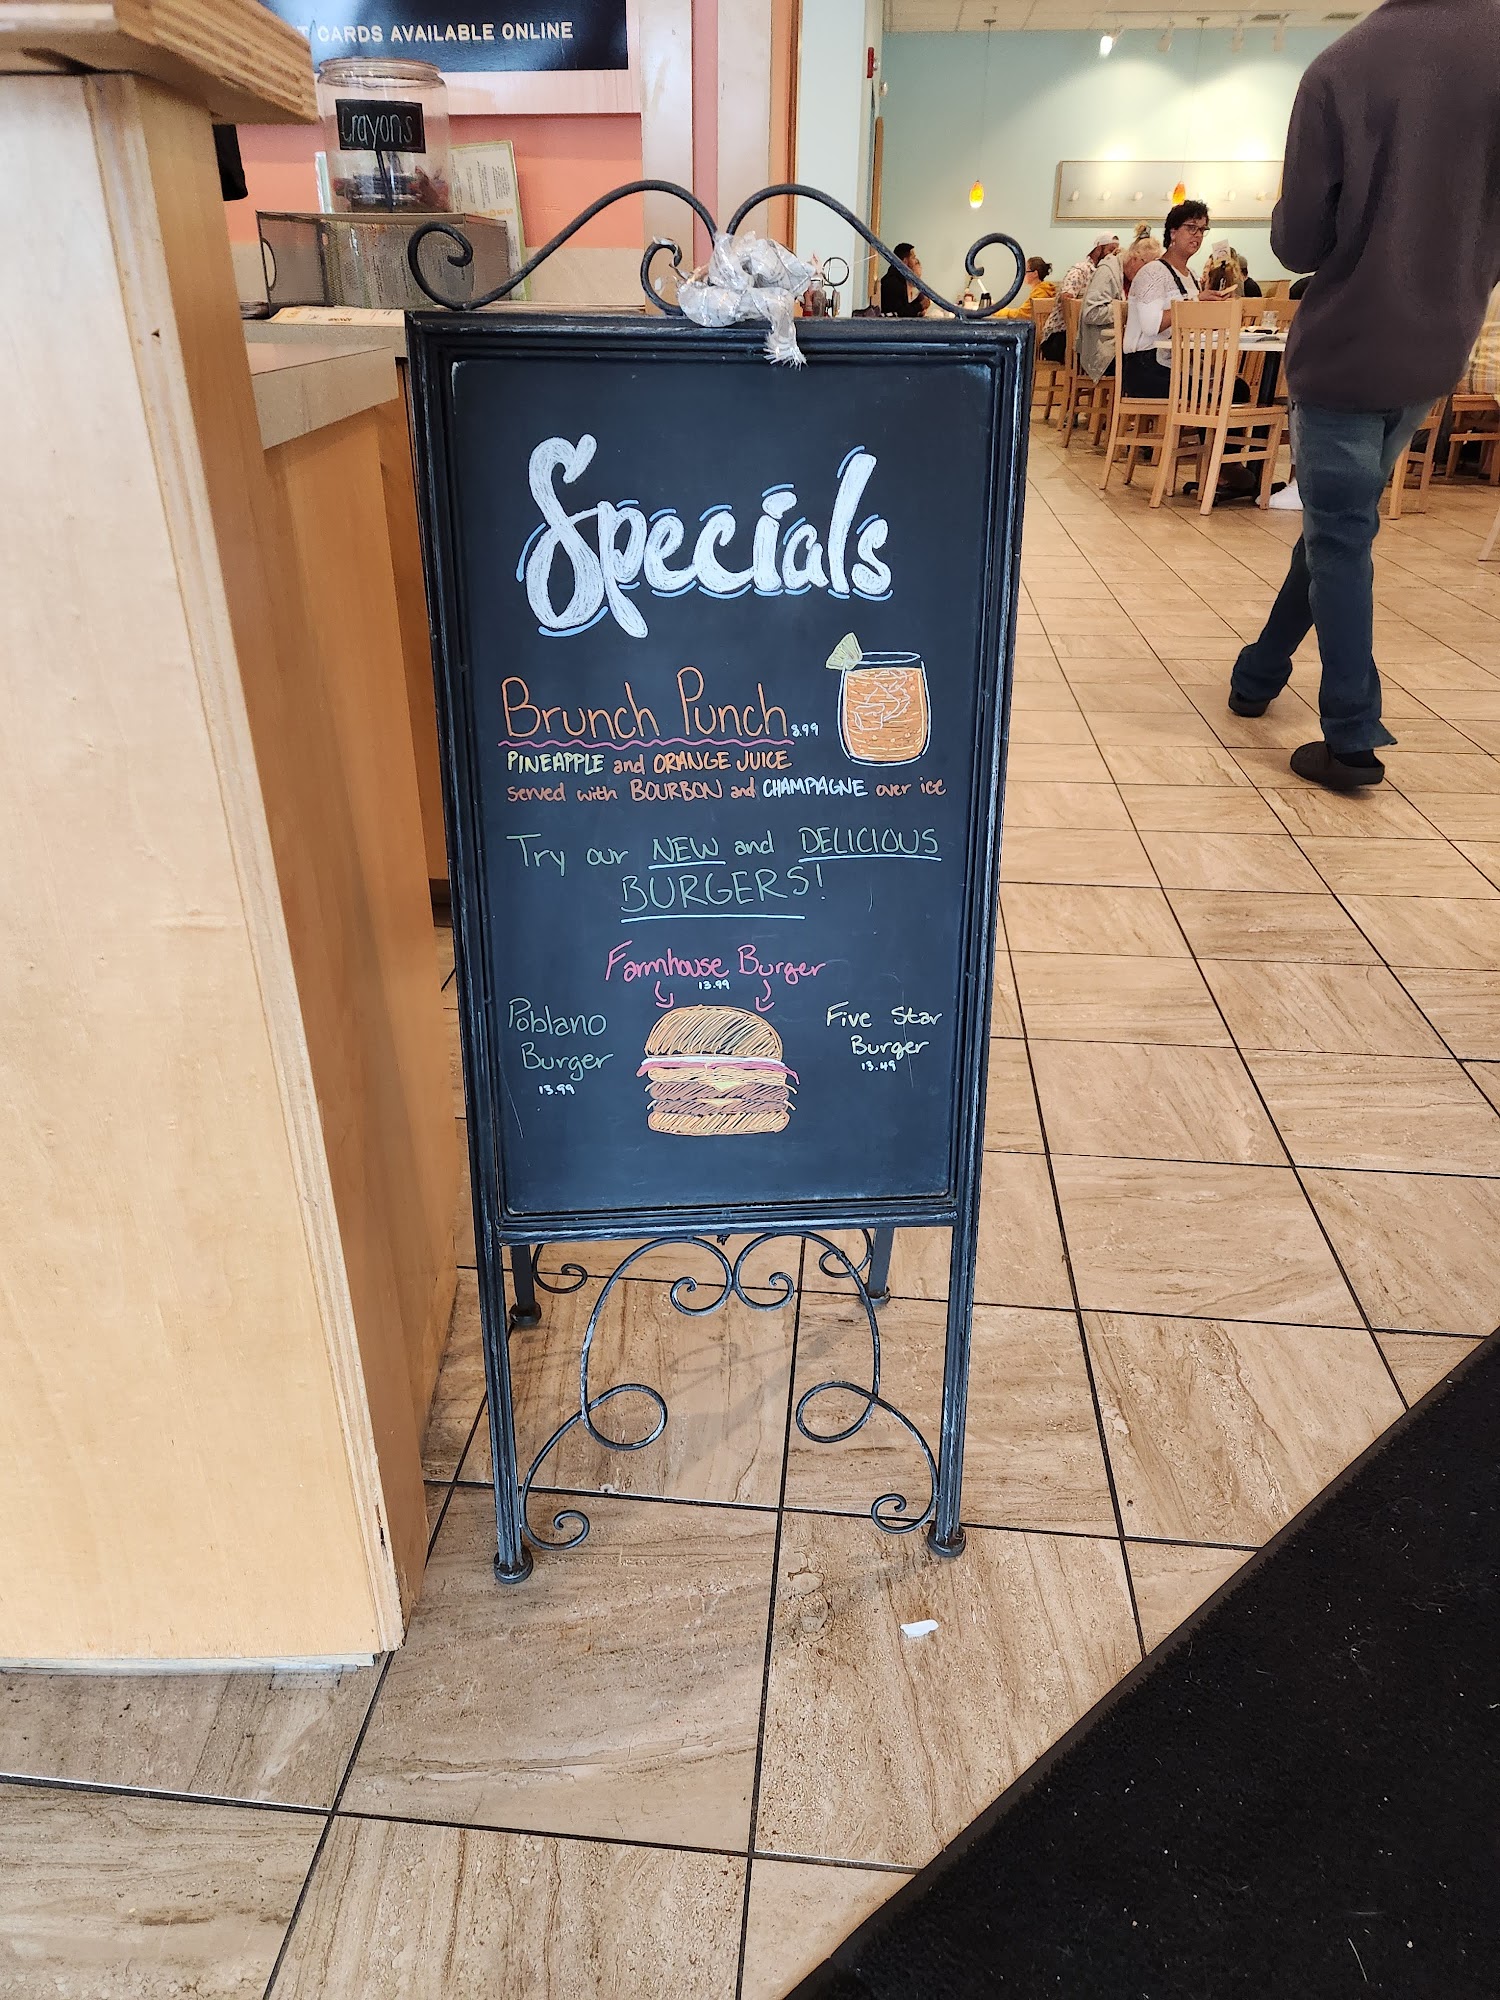 T CARDS AVAILABLE ONLINE
Crayons
Specials
Brunch Punch 8.99
PINEAPPLE and ORANGE JUICE
served with BOURBON and CHAMPAGNE over ice
Try our NEW and DELICIOUS
BURGERS!
Farmhouse Burger
13.99
Poblano
Burger
13.99
Five Star
Burger
13.49